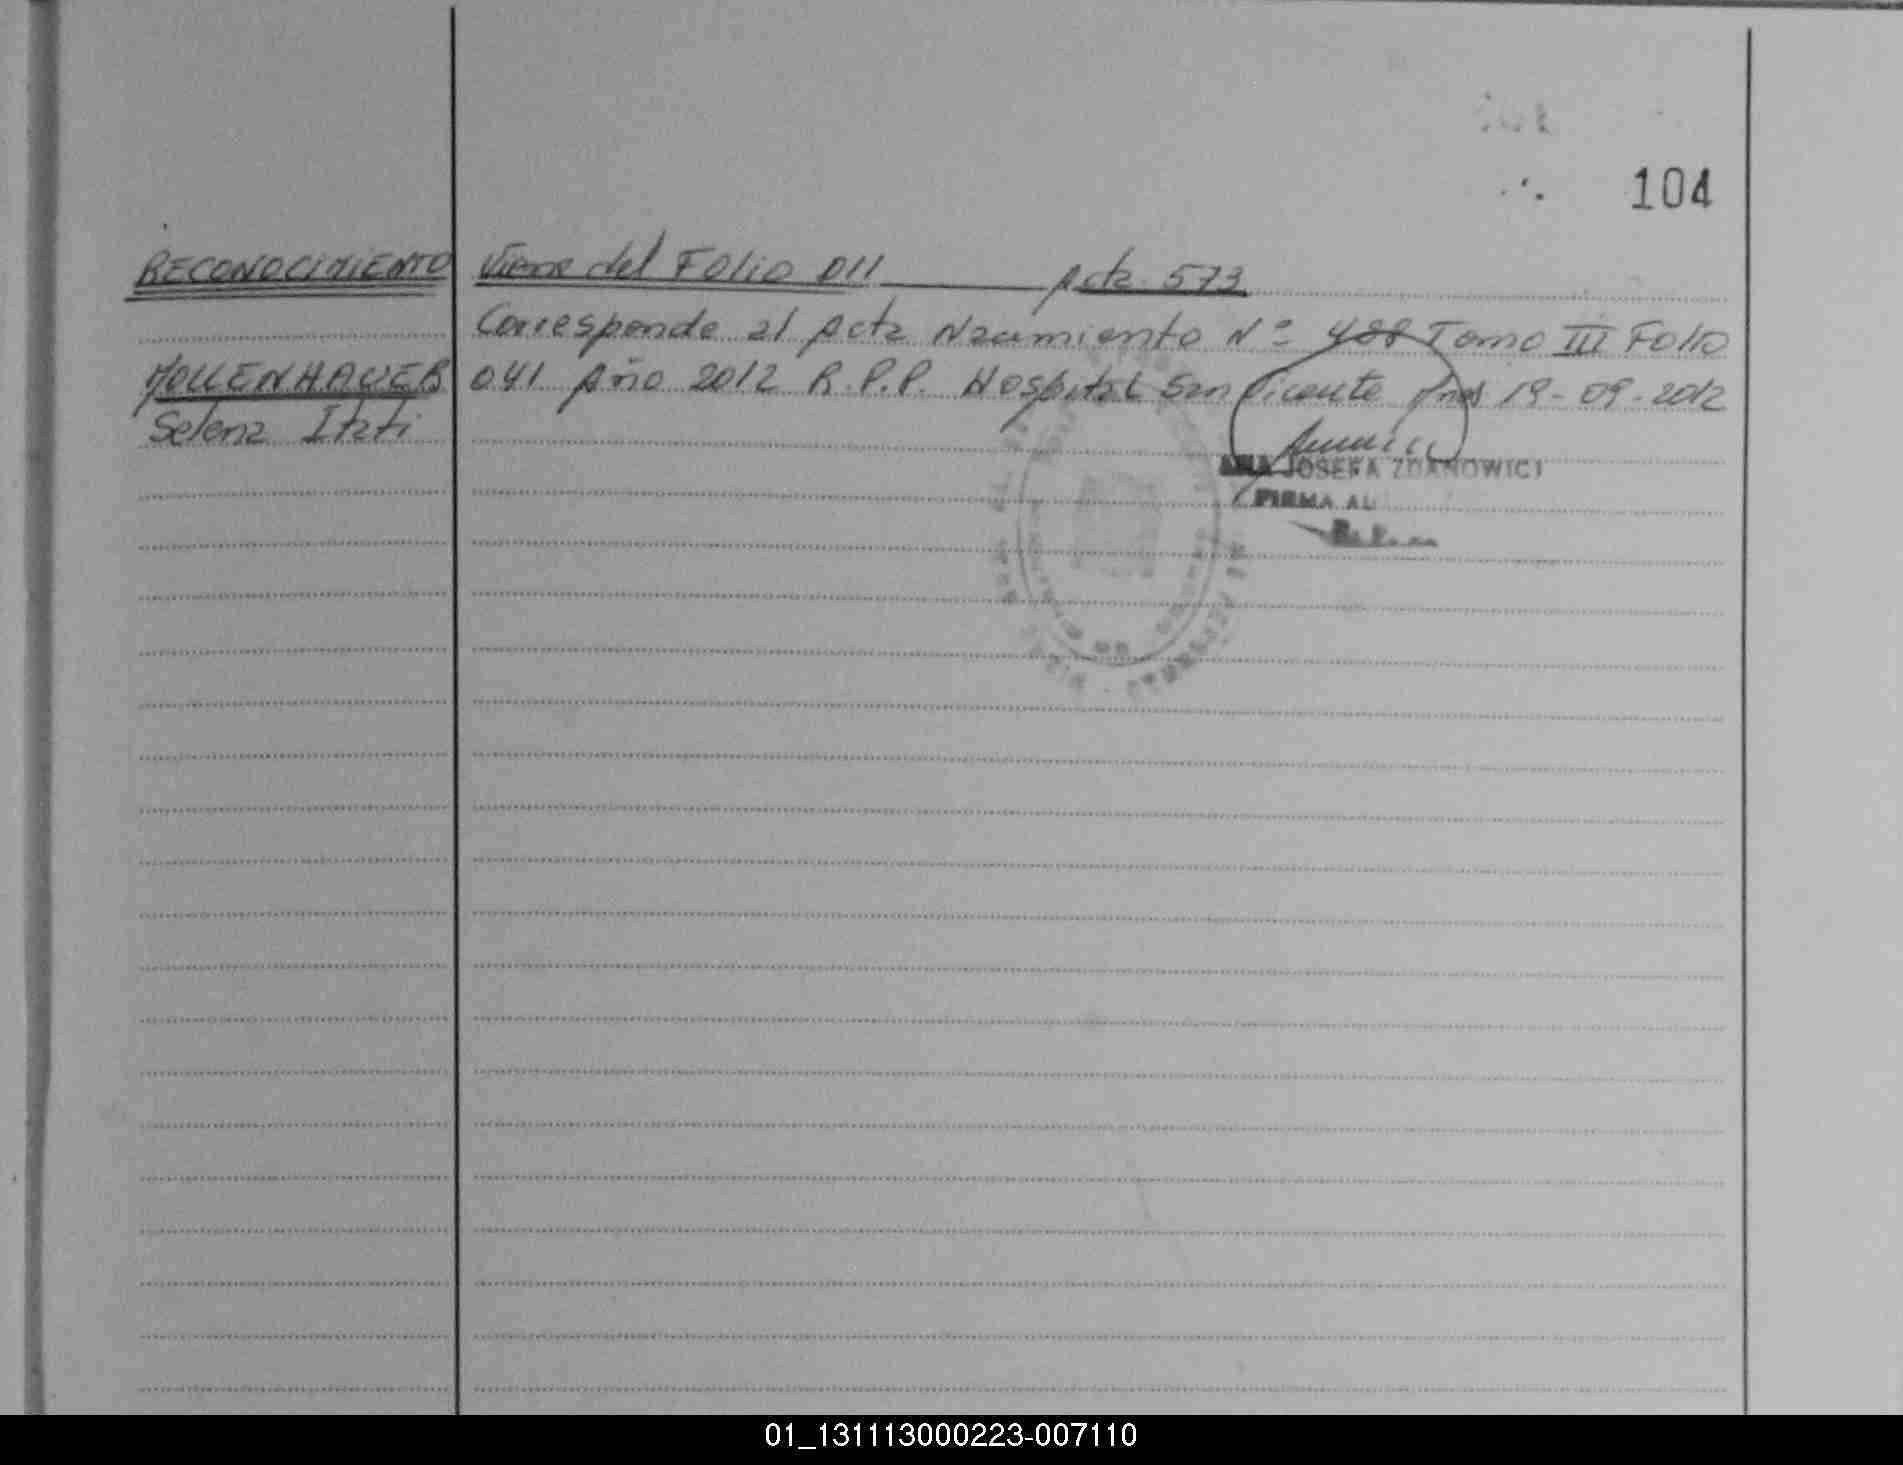 104
RECONOCIMIENTO Viene del Folio 011 Acta 573
Corresponde al Acta Nacimiento Nº 488 Tomo III Folio
MOLLENHAUER 041 Año 2012 R.P.P. Hospital San Vicente 19-09-2012
Selena Itati
ANA JOSEFA ZDANOWICZ
FIRMA AU
01_131113000223-007110